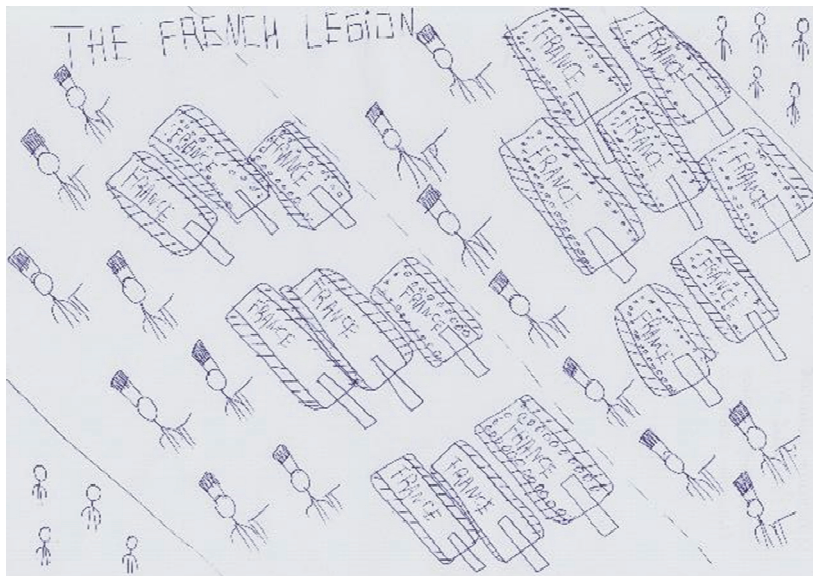 THE FRENCH LEGION
FRANCE
FRANCE
FRANCE
FRANCE
FRANCE
FRANCE
FRANCE
FRANCE
FRANCE
FRANCE
FRANCE
FRANCE
FRANCE
FRANCE
FRANCE
FRANCE